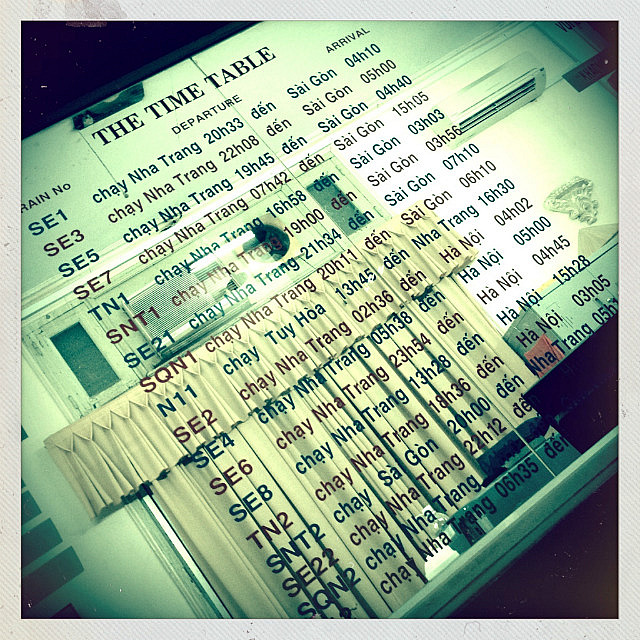 THE TIME TABLE
RAIN No DEPARTURE ARRIVAL
SE1 chạy Nha Trang 20h33 đến Sài Gòn 04h10
SE3 chạy Nha Trang 22h08 đến Sài Gòn 05h00
SE5 chạy Nha Trang 19h45 đến Sài Gòn 04h40
SE7 chạy Nha Trang 07h42 đến Sài Gòn 15h05
TN1 chạy Nha Trang 16h58 đến Sài Gòn 03h03
SNT1 chạy Nha Trang 19h00 đến Sài Gòn 03h56
SE21 chạy Nha Trang 21h34 đến Sài Gòn 07h10
SQN1 chạy Nha Trang 20h11 đến Sài Gòn 06h10
N11 chạy Tuy Hòa 13h45 đến Nha Trang 16h30
SE2 chạy Nha Trang 02h36 đến Hà Nội 04h02
SE4 chạy Nha Trang 05h38 đến Hà Nội 05h00
SE6 chạy Nha Trang 23h54 đến Hà Nội 04h45
SE8 chạy Nha Trang 13h28 đến Hà Nội 15h28
TN2 chạy Nha Trang 18h36 đến Hà Nội 03h05
SNT2 chạy Sài Gòn 21h00 đến Nha Trang
SE22 chạy Nha Trang 22h12
SQN2 chạy Nha Trang 06h35 đến